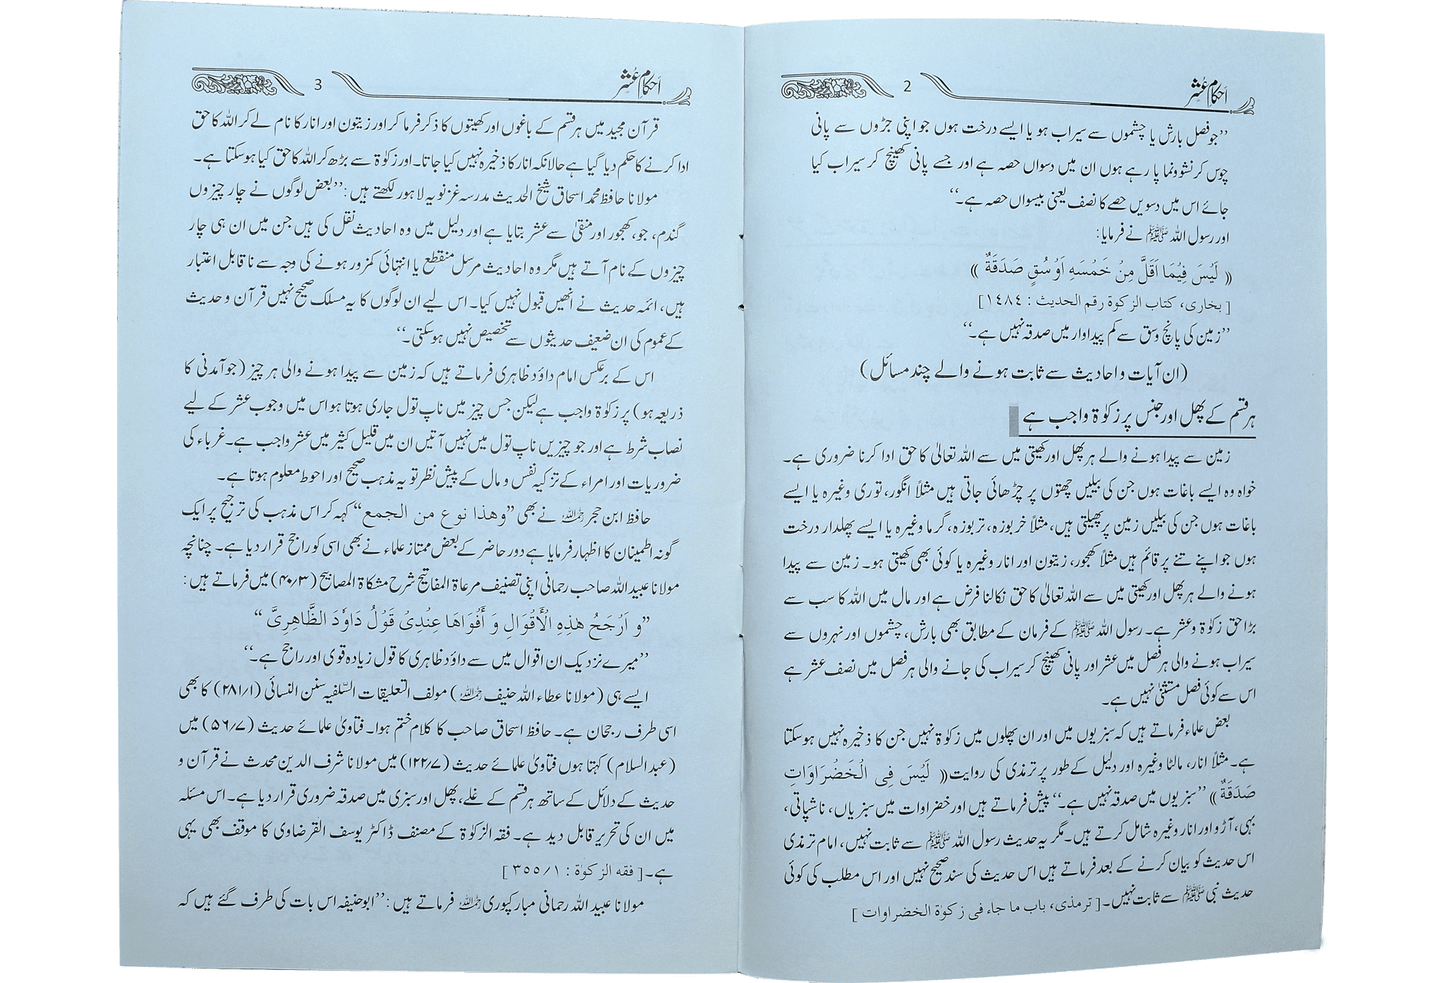 احکام عُشر
2
’’جو فصل بارش یا چشموں سے سیراب ہو یا ایسے درخت ہوں جو اپنی جڑوں سے پانی
چوس کر نشوونما پا رہے ہوں ان میں دسواں حصہ ہے اور جسے پانی کھینچ کر سیراب کیا
جائے اس میں دسویں حصے کا نصف یعنی بیسواں حصہ ہے۔‘‘
اور رسول اللہ ﷺ نے فرمایا:
« لَيْسَ فِيْمَا اَقَلَّ مِنْ خَمْسَهِ اَوْسُقٍ صَدَقَةٌ »
[ بخاری، کتاب الزکوة رقم الحدیث : ١٤٨٤]
’’زمین کی پانچ وسق سے کم پیداوار میں صدقہ نہیں ہے۔‘‘
(ان آیات و احادیث سے ثابت ہونے والے چند مسائل)
ہر قسم کے پھل اور جنس پر زکوۃ واجب ہے
زمین سے پیدا ہونے والے ہر پھل اور کھیتی میں سے اللہ تعالیٰ کا حق ادا کرنا ضروری ہے۔
خواہ وہ ایسے باغات ہوں جن کی بیلیں چھتوں پر چڑھائی جاتی ہیں مثلاً انگور، توری وغیرہ یا ایسے
باغات ہوں جن کی بیلیں زمین پر پھیلتی ہیں، مثلاً خربوزہ، تربوزہ، گرما وغیرہ یا ایسے پھلدار درخت
ہوں جو اپنے تنے پر قائم ہیں مثلاً کھجور، زیتون اور انار وغیرہ یا کوئی بھی کھیتی ہو۔ زمین سے پیدا
ہونے والے ہر پھل اور کھیتی میں سے اللہ تعالیٰ کا حق نکالنا فرض ہے اور مال میں اللہ کا سب سے
بڑا حق زکوۃ و عشر ہے۔ رسول اللہ ﷺ کے فرمان کے مطابق بھی بارش، چشموں اور نہروں سے
سیراب ہونے والی ہر فصل میں عشر اور پانی کھینچ کر سیراب کی جانے والی ہر فصل میں نصف عشر ہے
اس سے کوئی فصل مستثنیٰ نہیں ہے۔
بعض علماء فرماتے ہیں کہ سبزیوں میں اور ان پھلوں میں زکوۃ نہیں جن کا ذخیرہ نہیں ہوسکتا
ہے۔ مثلاً انار، مالٹا وغیرہ اور دلیل کے طور پر ترمذی کی روایت « لَيْسَ فِى الْخَضْرَاوَاتِ
صَدَقَةٌ » ’’سبزیوں میں صدقہ نہیں ہے۔‘‘ پیش فرماتے ہیں اور خضراوات میں سبزیاں، ناشپاتی،
بہی، آڑو اور انار وغیرہ شامل کرتے ہیں۔ مگر یہ حدیث رسول اللہ ﷺ سے ثابت نہیں، امام ترمذی
اس حدیث کو بیان کرنے کے بعد فرماتے ہیں اس حدیث کی سند صحیح نہیں اور اس مطلب کی کوئی
حدیث نبی ﷺ سے ثابت نہیں۔ [ ترمذی، باب ما جاء فی زکوٰۃ الخضراوات ]
احکام عُشر
3
قرآن مجید میں ہر قسم کے باغوں اور کھیتوں کا ذکر فرما کر اور زیتون اور انار کا نام لے کر اللہ کا حق
ادا کرنے کا حکم دیا گیا ہے حالانکہ انار کا ذخیرہ نہیں کیا جاتا۔ اور زکوۃ سے بڑھ کر اللہ کا حق کیا ہوسکتا ہے۔
مولانا حافظ محمد اسحاق شیخ الحدیث مدرسہ غزنویہ لاہور لکھتے ہیں: ’’بعض لوگوں نے چار چیزوں
گندم، جو، کھجور اور منقیٰ سے عشر بتایا ہے اور دلیل میں وہ احادیث نقل کی ہیں جن میں ان ہی چار
چیزوں کے نام آتے ہیں مگر وہ احادیث مرسل منقطع یا انتہائی کمزور ہونے کی وجہ سے ناقابل اعتبار
ہیں، ائمہ حدیث نے انھیں قبول نہیں کیا۔ اس لیے ان لوگوں کا یہ مسلک صحیح نہیں قرآن و حدیث
کے عموم کی ان ضعیف حدیثوں سے تخصیص نہیں ہوسکتی۔‘‘
اس کے برعکس امام داؤد ظاہری فرماتے ہیں کہ زمین سے پیدا ہونے والی ہر چیز (جو آمدنی کا
ذریعہ ہو) پر زکوۃ واجب ہے لیکن جس چیز میں ناپ تول جاری ہوتا ہو اس میں وجوب عشر کے لیے
نصاب شرط ہے اور جو چیزیں ناپ تول میں نہیں آتیں ان میں قلیل کثیر میں عشر واجب ہے۔ غرباء کی
ضروریات اور امراء کے تزکیہ نفس و مال کے پیش نظر تو یہ مذہب صحیح اور احوط معلوم ہوتا ہے۔
حافظ ابن حجر رحمہ اللہ نے بھی ’’وهذا نوع من الجمع‘‘ کہہ کر اس مذہب کی ترجیح پر ایک
گونہ اطمینان کا اظہار فرمایا ہے دور حاضر کے بعض ممتاز علماء نے بھی اسی کو راجح قرار دیا ہے۔ چنانچہ
مولانا عبیداللہ صاحب رحمانی اپنی تصنیف مرعاۃ المفاتیح شرح مشکاۃ المصابیح (۴۰/۳) میں فرماتے ہیں:
’’و اَرْجَحُ هٰذِهِ الْأَقْوَالِ وَ أَقْوَاهَا عِنْدِىْ قَوْلُ دَاوٗدَ الظَّاهِرِىِّ ‘‘
’’میرے نزدیک ان اقوال میں سے داؤد ظاہری کا قول زیادہ قوی اور راجح ہے۔‘‘
ایسے ہی (مولانا عطاء اللہ حنیف رحمہ اللہ) مولف التعلیقات السّلفیہ سنن النسائی (۲۸۱/۱) کا بھی
اسی طرف رجحان ہے۔ حافظ اسحاق صاحب کا کلام ختم ہوا۔ فتاویٰ علمائے حدیث (۵۶/۷) میں
(عبدالسلام) کہتا ہوں فتاویٰ علمائے حدیث (۱۲۲/۷) میں مولانا شرف الدین محدث نے قرآن و
حدیث کے دلائل کے ساتھ ہر قسم کے غلے، پھل اور سبزی میں صدقہ ضروری قرار دیا ہے۔ اس مسئلہ
میں ان کی تحریر قابل دید ہے۔ فقہ الزکوۃ کے مصنف ڈاکٹر یوسف القرضاوی کا موقف بھی یہی
ہے۔ [ فقه الزكوة : ٣٥٥/١ ]
مولانا عبید اللہ رحمانی مبارکپوری رحمہ اللہ فرماتے ہیں: ’’ابوحنیفہ اس بات کی طرف گئے ہیں کہ